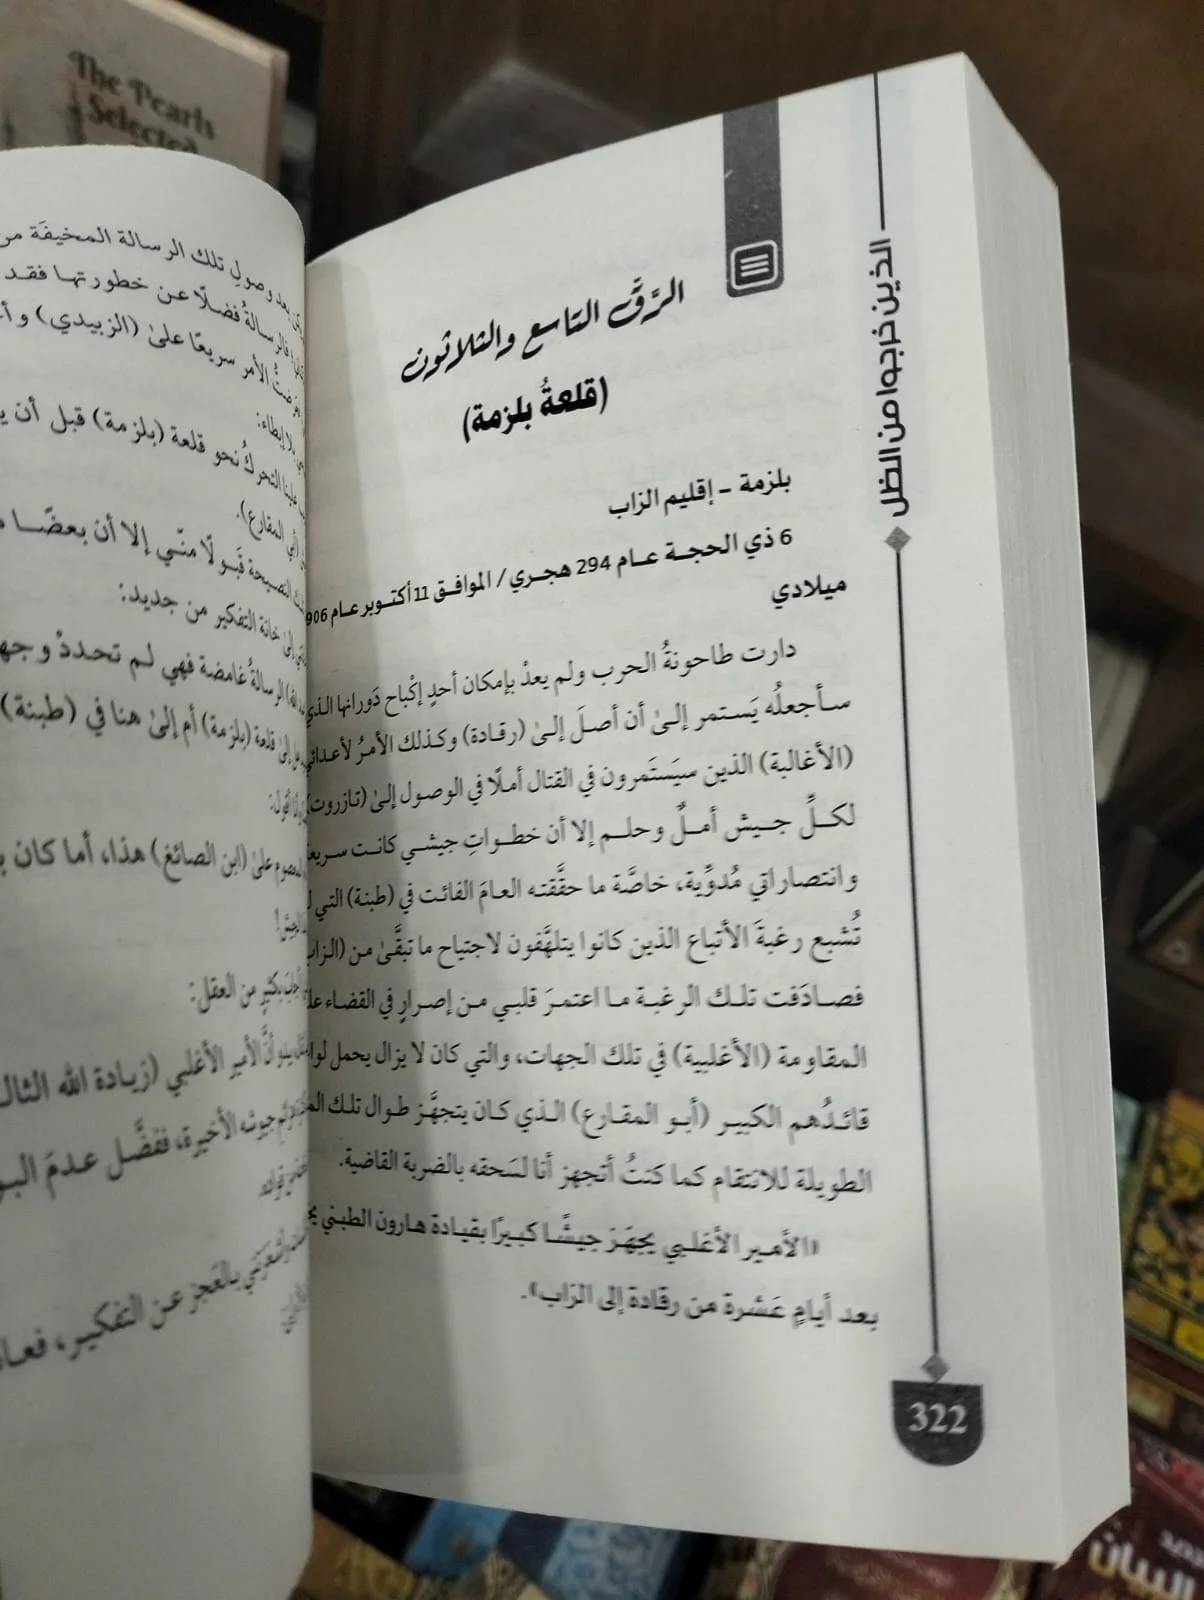 The Pearls
Selected
الذين خرجوا من الظل
الرَّقّ التاسع والثلاثون
(قلعةُ بلزمة)
بلزمة – إقليم الزاب
6 ذي الحجة عام 294 هجري / الموافق 11 أكتوبر عام 906
ميلادي
دارت طاحونةُ الحرب ولم يعدْ بإمكان أحدٍ إكْباح دَورانها الذي
سأجعلُه يَستمر إلىٰ أن أصلَ إلىٰ (رقادة) وكذلك الأمرُ لأعدائي
(الأغالبة) الذين سيَستَمرون في القتال أملًا في الوصول إلىٰ (تازروت)
لكلِّ جيش أملٌ وحلم إلا أن خطواتِ جيشي كانت سريعة
وانتصاراتي مُدوِّية، خاصَّة ما حقَّقته العامَ الفائت في (طبنة) التي
تُشبع رغبةَ الأتباع الذين كانوا يتلهَّفون لاجتياح ما تبقَّىٰ من (الزاب
فصادَفت تلك الرغبة ما اعتمرَ قلبي من إصرارٍ في القضاء
المقاومة (الأغلبية) في تلك الجهات، والتي كان لا يزال يحمل
قائدُهم الكبير (أبو المقارع) الذي كان يتجهَّز طوال تلك
الطويلة للانتقام كما كنتُ أتجهز أنا لسَحقه بالضربة القاضية.
«الأمير الأغلبي يجهّز جيشًا كبيرًا بقيادة هارون الطبني
بعد أيامٍ عَشرة من رقادة إلى الزاب».
322
بعد وصولِ تلك الرسالة المخيفَة
الرسالةُ فضلًا عن خطورتها فقد
الأمر سريعًا علىٰ (الزبيدي)
بلا إبطاء:
علينا التحركُ نحو قلعة (بلزمة) قبل أن
المقارع).
النصيحة قَبولًا منّي إلا أن بعضًا
إلىٰ خانة التفكير من جديد:
الرسالةُ غامضة فهي لم تحددْ
إلىٰ قلعة (بلزمة) أم إلىٰ هنا في (طبنة)
علىٰ (ابن الصائغ) هذا، أما كان
بكثيرٍ من العقل:
أنَّ الأمير الأغلبي (زيادة الله
جيوشه الأخيرة، ففضَّل عدمَ
بالعَجز عن التفكير،
البيان